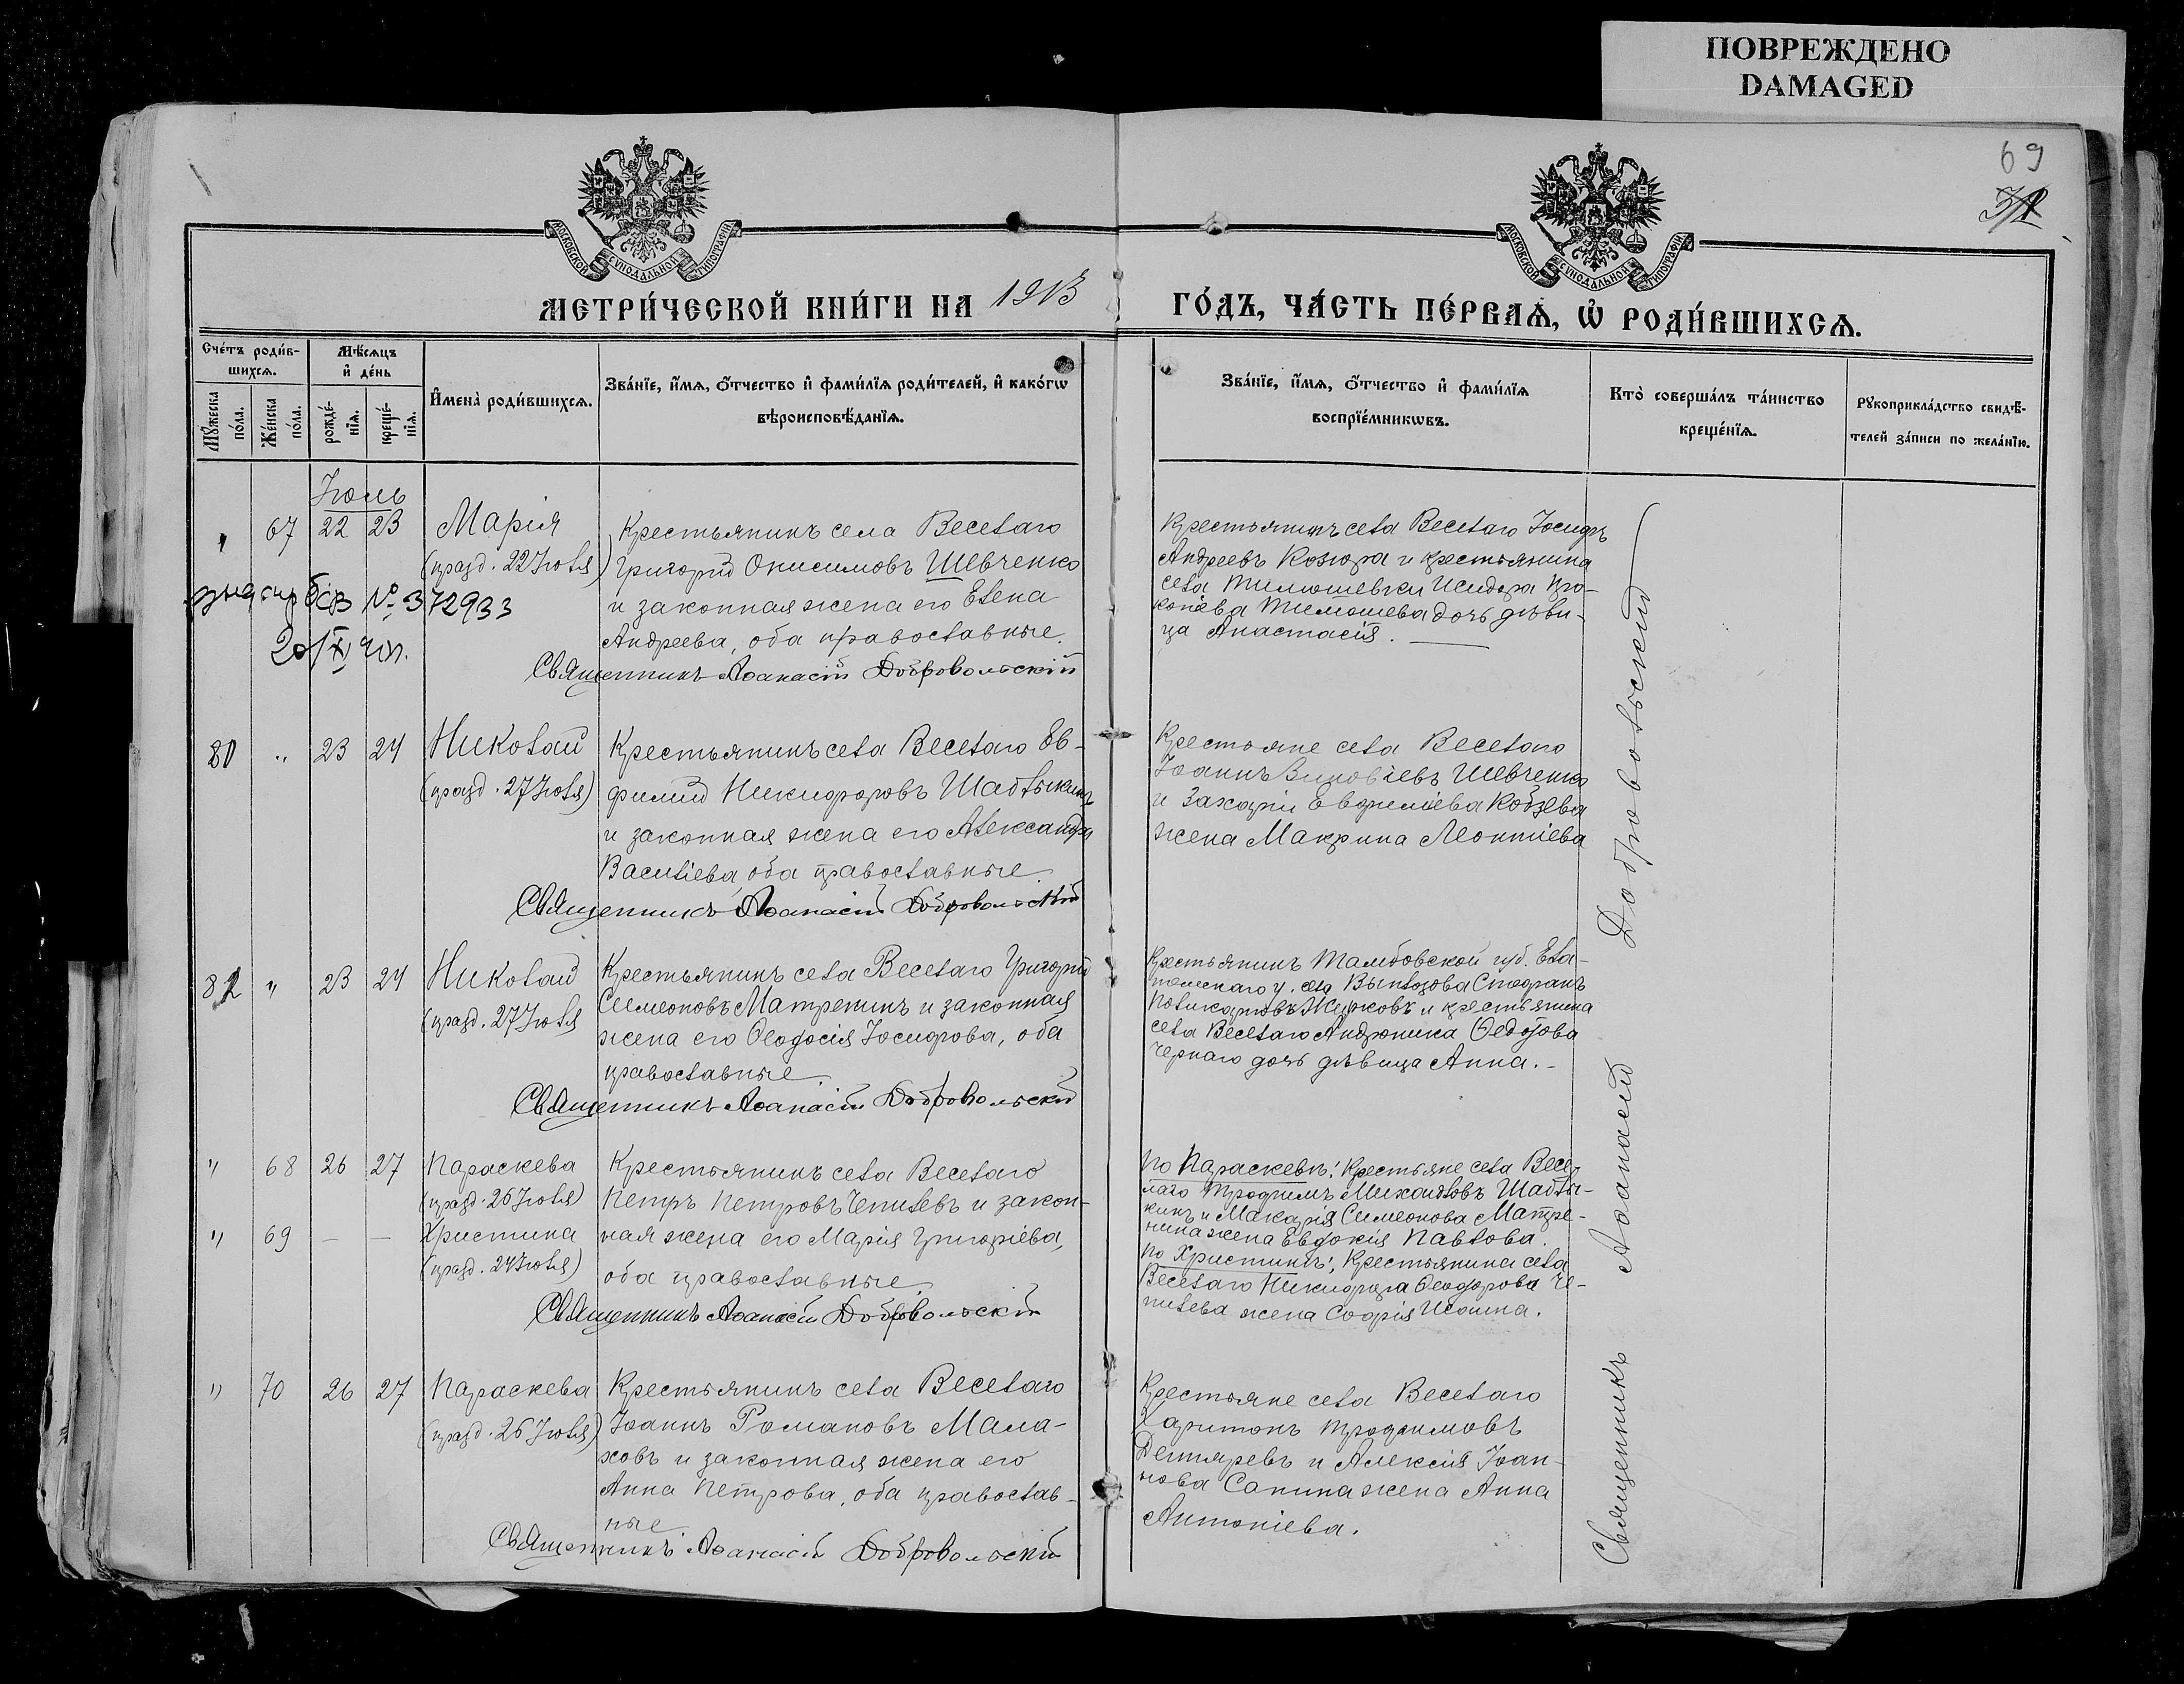 ПОВРЕЖДЕНО
DAMAGED
69
МОСКОВСКОЙ СѴНОДАЛЬНОЙ ТИПОГРАФІИ
МОСКОВСКОЙ СѴНОДАЛЬНОЙ ТИПОГРАФІИ
МЕТРИ́ЧЕСКОЙ КНИ́ГИ НА 1913 ГО́ДЪ, ЧА́СТЬ ПЕ́РВАѦ, Ѡ҆ РОДИ́ВШИХСѦ.
Сче́тъ роди́в-
шихсѧ.
Мѣ́сѧцъ
и҆ де́нь
Мꙋ́жеска
по́ла.
Же́нска
по́ла.
рожде́-
нїѧ.
креще́-
нїѧ.
И҆мена̀ роди́вшихсѧ.
Зва́нїе, и҆́мѧ, ѻ҆́тчество и҆ фами́лїѧ роди́телей, и҆ како́гѡ
вѣроисповѣ́данїѧ.
Зва́нїе, и҆́мѧ, ѻ҆́тчество и҆ фами́лїѧ
воспрїе́мникѡвъ.
Кто̀ соверша́лъ та́инство
креще́нїѧ.
Рꙋкоприкла́дство свидѣ́-
телей за́писи по жела́нїю.
Іюль
" 67 22 23 Марія
(празд. 22 Іюля)
№ 372933
20/XI
Крестьянинъ села Веселаго
Григорій Онисимовъ Шевченко
и законная жена его Елена
Андреева, оба православные.
Священникъ Аѳанасій Добровольскій
Крестьянинъ села Веселаго Іосифъ
Андреевъ Козюра и крестьянина
села Тимошевки Исидора Про-
копіева Тимошева дочь дѣви-
ца Анастасія.
80 " 23 24 Николай
(празд. 27 Іюля)
Крестьянинъ села Веселаго Ев-
фимій Никифоровъ Шаблыкинъ
и законная жена его Александра
Василіева оба православные.
Священникъ Аѳанасій Добровольскій
Крестьяне села Веселаго
Іоаннъ Зиновіевъ Шевченко
и Захарія Евфиміева Кобзева
жена Макрина Леонтіева
81 " 23 24 Николай
(празд. 27 Іюля
Крестьянинъ села Веселаго Григорій
Симеоновъ Матренинъ и законная
жена его Ѳеодосія Іосифова, оба
православные.
Священникъ Аѳанасій Добровольскій
Крестьянинъ Тамбовской губ. Ела-
томскаго у. села Стефанъ
Поликарповъ и крестьянина
села Веселаго Андроника Ѳедотова
Чернаго дочь дѣвица Анна.
" 68 26 27 Параскева
(празд. 26 Іюля)
" 69 — — Христина
(празд. 24 Іюля)
Крестьянинъ села Веселаго
Петръ Петровъ Чепилевъ и закон-
ная жена его Марія Григоріева,
оба православные.
Священникъ Аѳанасій Добровольскій
По Параскевѣ: Крестьяне села Весе-
лаго Трофимъ Михаиловъ Шаблы-
кинъ и Макарія Симеонова Матре-
нина жена Евдокія Павлова.
По Христинѣ: Крестьянина села
Веселаго Никифора Ѳеодорова Че-
пилева жена Софія Исаина.
" 70 26 27 Параскева
(празд. 26 Іюля)
Крестьянинъ села Веселаго
Іоаннъ Романовъ Мала-
ховъ и законная жена его
Анна Петрова, оба православ-
ные.
Священникъ Аѳанасій Добровольскій
Крестьяне села Веселаго
Харитонъ Трофимовъ
Дегтяревъ и Алексія Іоан-
нова Санина жена Анна
Антоніева.
Священникъ Аѳанасій Добровольскій